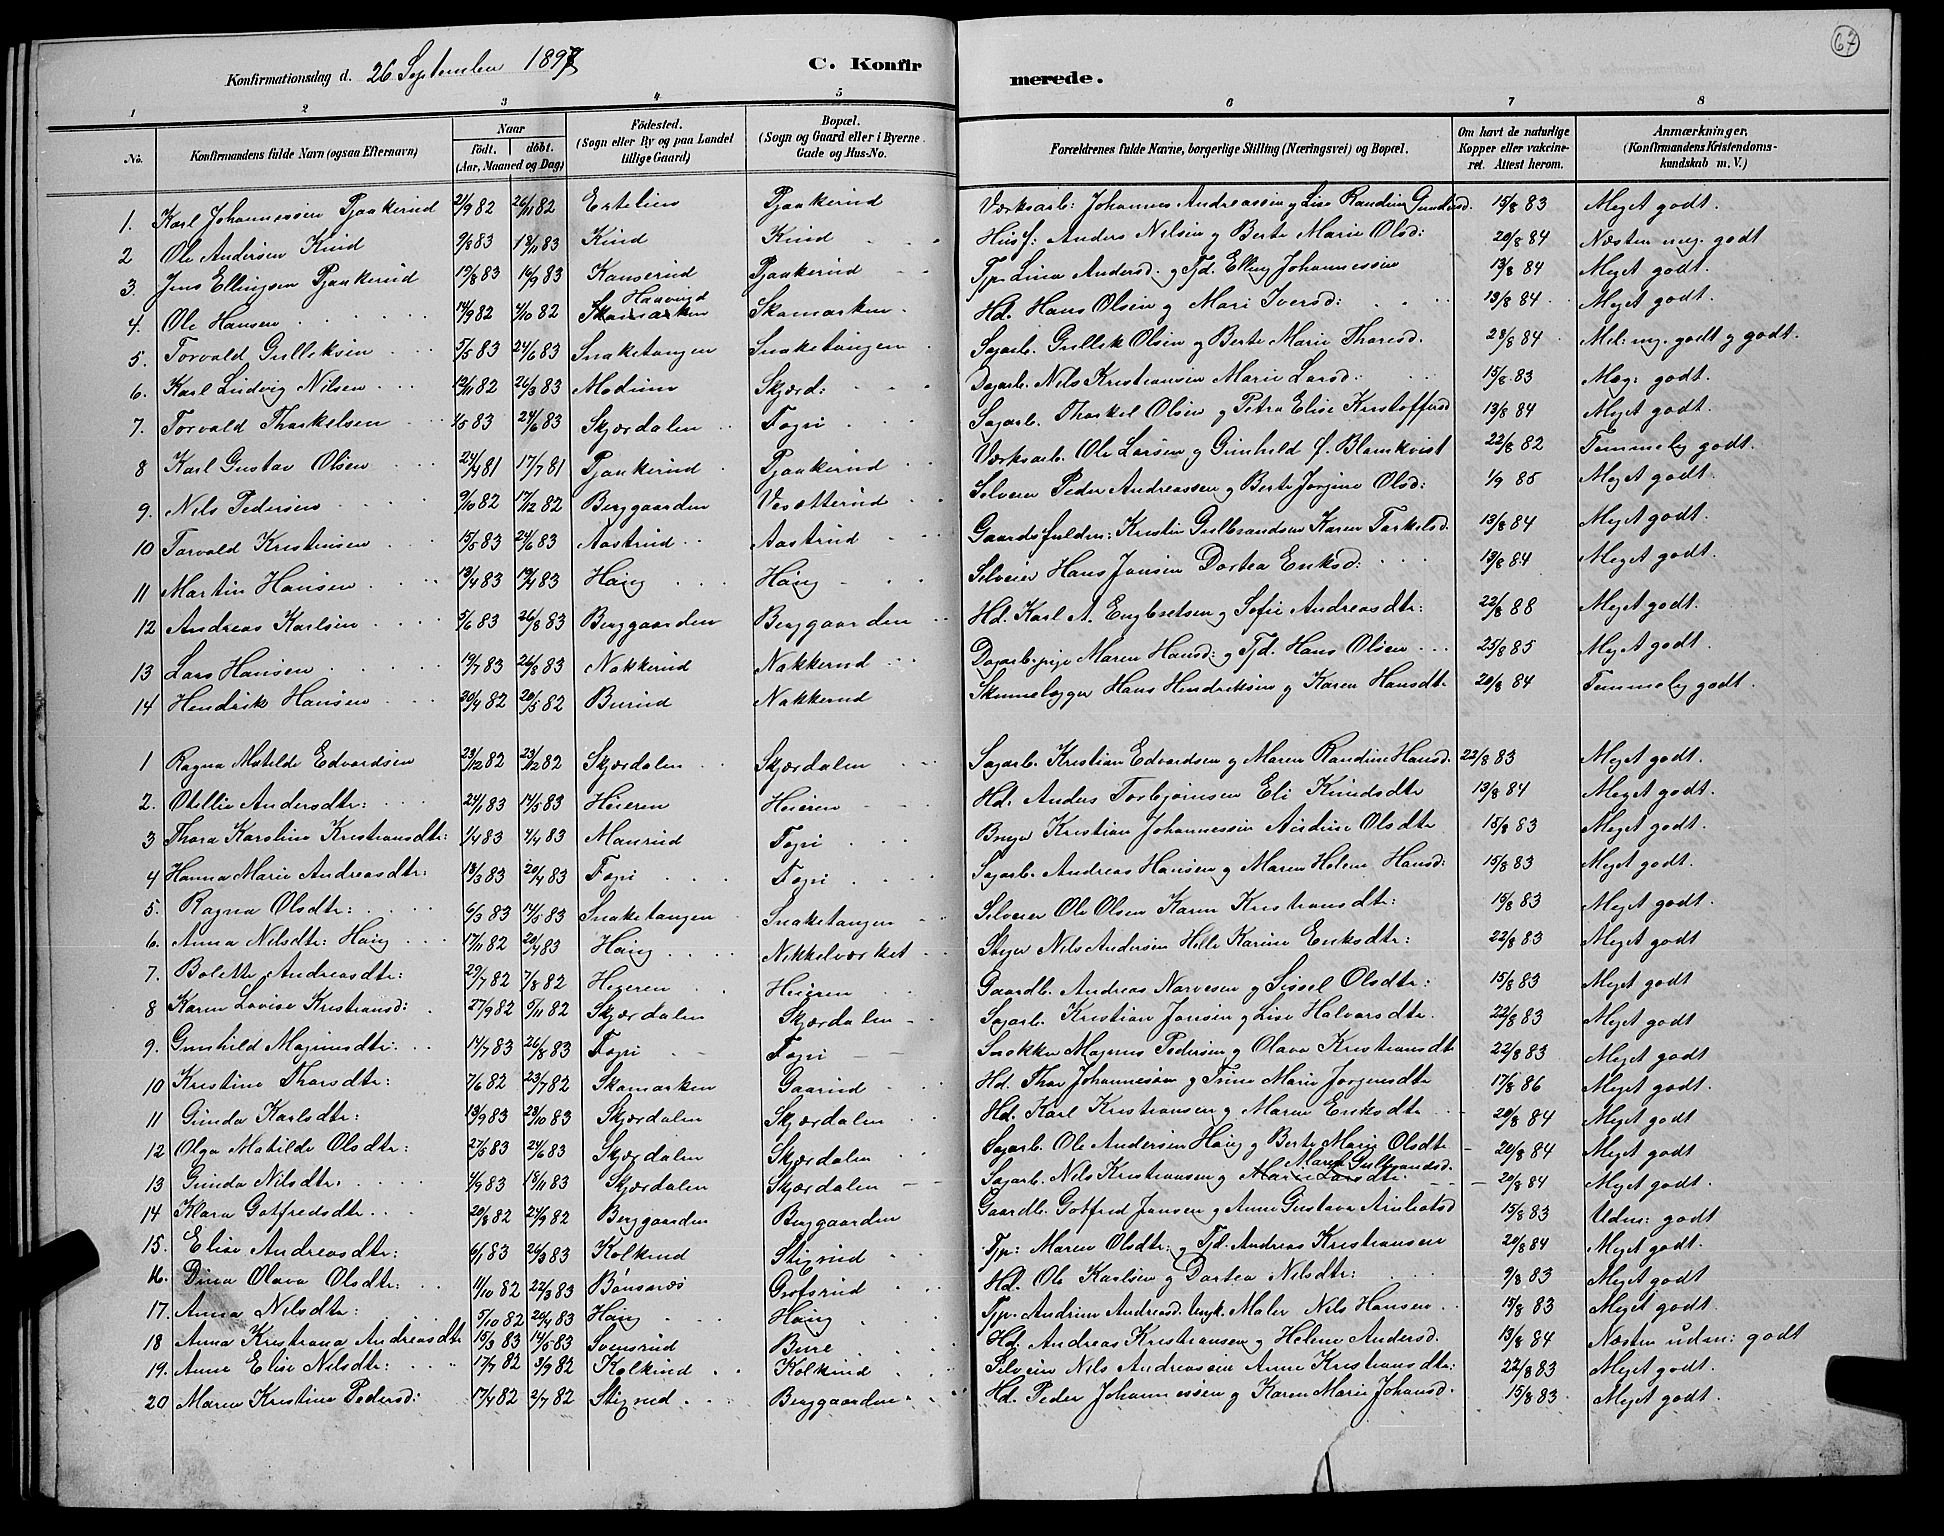 67
Konfirmationsdag d. 26 September 1897
C. Konfirmerede.
1 2 3 4 5 6 7 8
No. Konfirmandens fulde Navn (ogsaa Efternavn) Naar født. døbt. (Aar, Maaned og Dag) Fødested. (Sogn eller By og paa Landet tillige Gaard) Bopæl. (Sogn og Gaard eller i Byerne Gade og Hus-No. Forældrenes fulde Navne, borgerlige Stilling (Næringsvei) og Bopæl. Om havt de naturlige Kopper eller vakcineret. Attest herom. Anmærkninger, (Konfirmandens Kristendomskundskab m. V.)
1. Karl Johannessen Pjaakerud 21/9 82 26/11 82 Ertelien Pjaakerud Værksarb: Johannes Andreassen g Lise Randine Gundersd. 15/8 83 Meget godt.
2 Ole Andersen Kind 9/8 83 18/11 83 Kind Kind Husf: Anders Nilsen g Berte Marie Olsd: 20/8 84 Næsten meg. godt
3. Jens Ellingsen Pjaakerud 19/8 83 16/9 83 Pjaakerud Tjp. Lina Andersd. g Tjd. Elling Johannessen 13/8 84 Meget godt.
4. Ole Hansen 14/9 82 1/10 82 Skamarken Haavind Skamarken Hd. Hans Olsen g Mari Iversd: 13/8 84 Meget godt.
5. Torvald Gulleksen 5/5 83 24/6 83 Snaketangen Snaketangen Sagarb. Gullek Olsen g Berte Marie Thoresd. 28/8 84 Mel: mg. godt g godt.
6. Karl Ludvig Nilsen 12/11 82 26/3 83 Modum Skjærd: Dagarb. Nils Kristiansen Marie Larsd: 15/8 83 Meg: godt.
7. Torvald Thorkelsen 1/5 83 24/6 83 Skjærdalen Fagri Sagarb. Thorkel Olsen g Petra Elise Kristoffersd 13/8 84 Meget godt.
8 Karl Gustav Olsen 24/4 81 17/7 81 Pjaakerud Pjaakerud Værksarb. Ole Larsen g Gunhild f. Blomkvist 22/8 82 Temmelig godt.
9. Nils Pedersen 9/10 82 17/12 82 Berggaarden Vesetterud Selveier Peder Andreassen g Berte Jorgine Olsd: 1/9 85 Meget godt.
10 Torvald Kristensen 15/5 83 24/6 83 Aastrud Aastrud Gaardsfuldm: Kristen Gulbrandsen Karen Torkelsd. 13/8 84 Meget godt.
11 Martin Hansen 13/4 83 19/4 83 Haug Haug Selveier Hans Jonsen Dortea Eriksd: 19/8 84 Meget godt.
12 Andreas Karlsen 5/6 83 26/8 83 Berggaarden Berggaarden Hd. Karl A. Engbretsen g Sofie Andreasdtr: 22/8 88 Meget godt.
13 Lars Hansen 19/7 83 26/8 83 Nakkerud Nakkerud Dagarb.pige Maren Hansd: g Tjd. Hans Olsen 25/8 85 Meget godt.
14 Hendrik Hansen 20/4 82 20/5 82 Burud Nakkerud Skinnelægger Hans Hendriksen g Karen Hansdtr. 20/8 84 Temmelig godt.
1 Ragna Matilde Edvardsen 23/12 82 Skjærdalen Skjærdalen Sagarb. Kristian Edvardsen g Maren Randine Hansd. 22/8 83 Meget godt.
2. Otellie Andersdtr: 24/1 83 14/5 83 Heieren Heieren Hd. Anders Torbjørnsen Eli Knudsdtr 13/8 84 Meget godt.
3 Thora Karoline Kristiansdtr: 1/4 83 83 Fagri Kristian Johannessen Olsdtr 15/8 83 Meget godt.
4 Hanna Marie Andreasdtr: 18/3 83 20/4 83 Fagri Fagri Sagarb. Andreas Hansen g Maren Helene Hansd: 15/8 83 Meget godt.
5. Ragna Olsdtr: 6/3 83 14/5 83 Snaketangen Snaketangen Selveier Ole Olsen Karen Kristiansdtr: 15/8 83 Meget godt.
6. Anna Nilsdtr: Haug 17/11 82 20/4 83 Haug Nikkelværket Stiger Nils Andersen Helle Karine Eriksdtr: 22/8 83 Meget godt
7. Bolette Andreasdtr: 29/7 82 7/8 82 Hegeren Heieren Gaardb. Andreas Narvesen g Sissel Olsdtr: 15/8 83 Meget godt
8 Karen Lovise Kristiansd: 27/9 82 5/11 82 Skjærdalen Skjærdalen Sagarb. Kristian Jonsen g Lise Halvorsdtr. 22/8 83 Meget godt
9. Gunhild Magnusdtr: 14/7 83 26/8 83 Fagri Fagri Snekker Magnus Pedersen g Olava Kristiansdtr 22/8 83 Meget godt
10 Kristine Thorsdtr: 7/6 82 23/7 82 Skamarken Gaarud Hd. Thor Johannessen g Trine Marie Jorgensdtr 17/8 86 Meget godt.
11 Gunda Karlsdtr: 13/9 83 29/10 83 Skjærdalen Skjærdalen Hd. Karl Kristiansen g Maren Eriksdtr 20/8 84 Meget godt
12 Olga Matilde Olsdtr: 27/5 83 24/6 83 Skjærdalen Skjærdalen Sagarb. Ole Andersen Haug g Berte Marie Olsdtr 20/8 84 Meget godt
13 Gunda Nilsdtr: 83 18/11 83 Skjærdalen Skjærdalen Sagarb. Nils Kristiansen g Marie Larsdtr. Maren Gulbrandsd. 20/8 84 Meget godt.
14 Klara Gotfredsdtr. 20/8 82 24/9 82 Berggaarden Berggaarden Gaardb. Gotfred Jansen g Anne Gustava 15/8 83 Udm: godt
15. Elise Andreasdtr: 6/1 83 26/3 83 Kolkind Stigrud Tjp: Maren Olsdtr: g Tjd. Andreas Kristiansen 20/8 84 Meget godt.
16. Dina Olava Olsdtr: 11/10 82 22/3 83 Bønsnæs Grofsrud Hd. Ole Karlsen g Dortea Nilsdtr: 9/8 83 Meget godt.
17. Anna Nilsdtr: 5/10 82 29/4 83 Haug Haug Tjp. Andrine Andreasd. Ungk. Maler Nils Hansen 15/8 83 Meget godt.
18 Anna Kristiana Andreasdtr 15/3 83 14/5 83 Svensrud Bure Hd. Andreas Kristiansen g Helene Andersd. 13/8 84 Næsten udm: godt
19. Anne Elise Nilsdtr: 17/7 82 3/9 82 Kolkind Kolkind Selveier Nils Andreassen Anne Kristiansdtr: 22/8 83 Meget godt.
20 Maren Kristine Pedersd: 17/4 82 2/7 82 Stigrud Berggaarden Hd. Peder Johannessen g Karen Marie Johansd. 15/8 83 Meget godt.